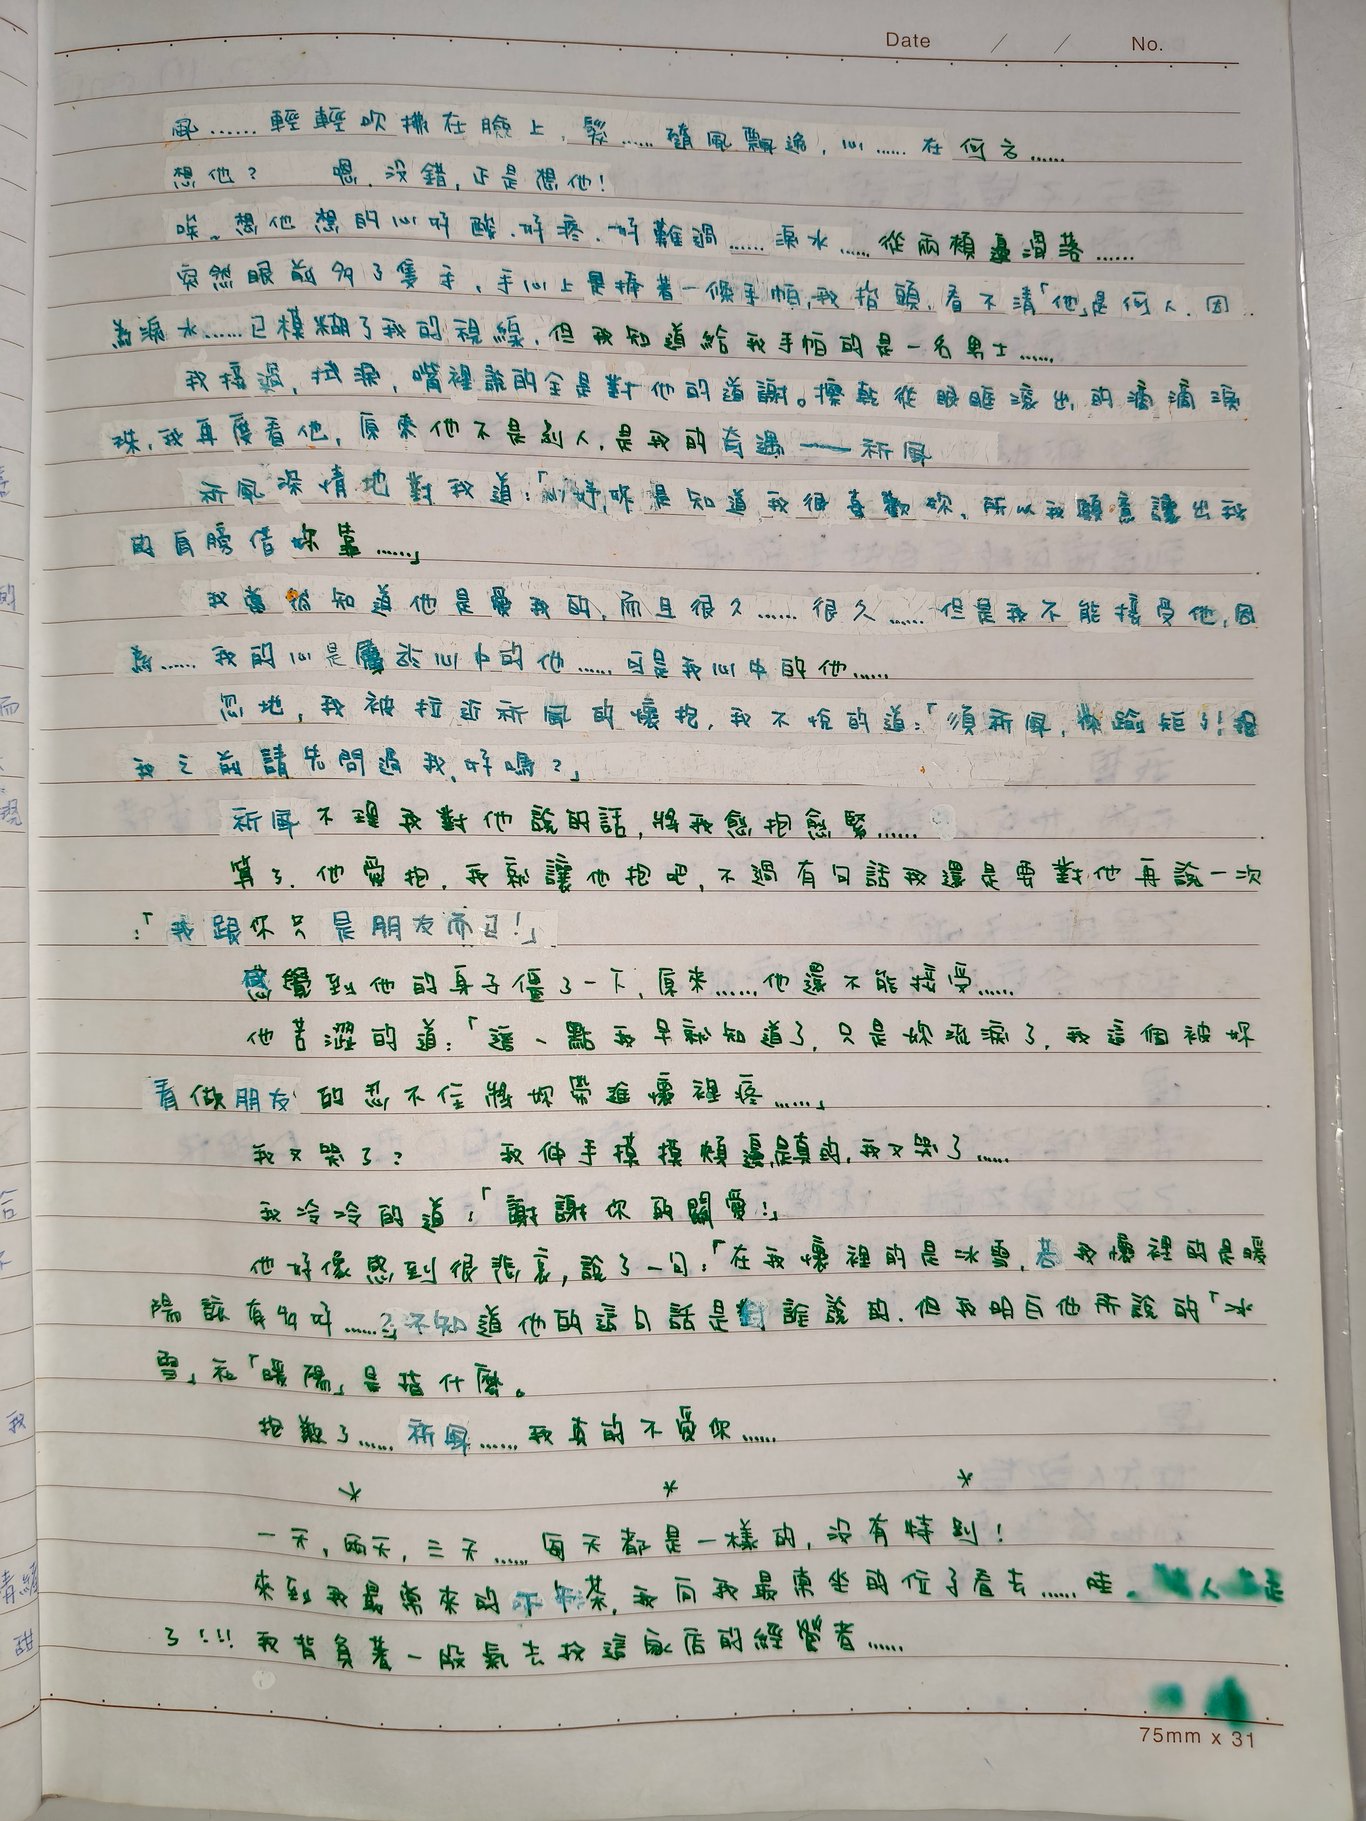 Date / / No.
風……輕輕吹拂在臉上，髮……隨風飄逸，心……在何方……
想他？ 嗯，沒錯，正是想他！
唉~想他想的心好酸、好疼、好難過……淚水……從兩頰邊滑落……
突然眼前多了隻手，手心上是捧著一條手帕，我抬頭，看不清「他」是何人，因
為淚水……已模糊了我的視線，但我知道給我手帕的是一名男士……
我接過，拭淚，嘴裡說的全是對他的道謝。擦乾從眼眶滾出的滴滴淚
珠，我再度看他，原來他不是別人，是我的奇遇——祈風
祈風深情地對我道：「心妤，你是知道我很喜歡妳，所以我願意讓出我
的肩膀借妳靠……」
我當然知道他是愛我的，而且很久……很久……但是我不能接受他，因
為……我的心是屬於心中的他……可是我心中的他……
忽地，我被拉近祈風的懷抱，我不悅的道：「須祈風，你踰矩了！抱
我之前請先問過我，好嗎？」
祈風不理我對他說的話，將我愈抱愈緊……
算了，他愛抱，我就讓他抱吧，不過有句話我還是要對他再說一次
：「我跟你只是朋友而已！」
感覺到他的身子僵了一下，原來……他還不能接受……
他苦澀的道：「這一點我早就知道了，只是妳流淚了，我這個被妳
看做朋友的忍不住將妳帶進懷裡疼……」
我又哭了？ 我伸手摸摸頰邊，是真的，我又哭了……
我冷冷的道：「謝謝你的關愛！」
他好像感到很悲哀，說了一句：「在我懷裡的是冰雪，若我懷裡的是暖
陽該有多好……」不知道他的這句話是對誰說的，但我明白他所說的「冰
雪」和「暖陽」是指什麼。
抱歉了……祈風……我真的不愛你……
* * *
一天，兩天，三天……每天都是一樣的，沒有特別！
來到我最常來的下午茶，我向我最常坐的位子看去……哇、人
了！！！我背負著一股氣去找這家店的經營者……
75mm x 31